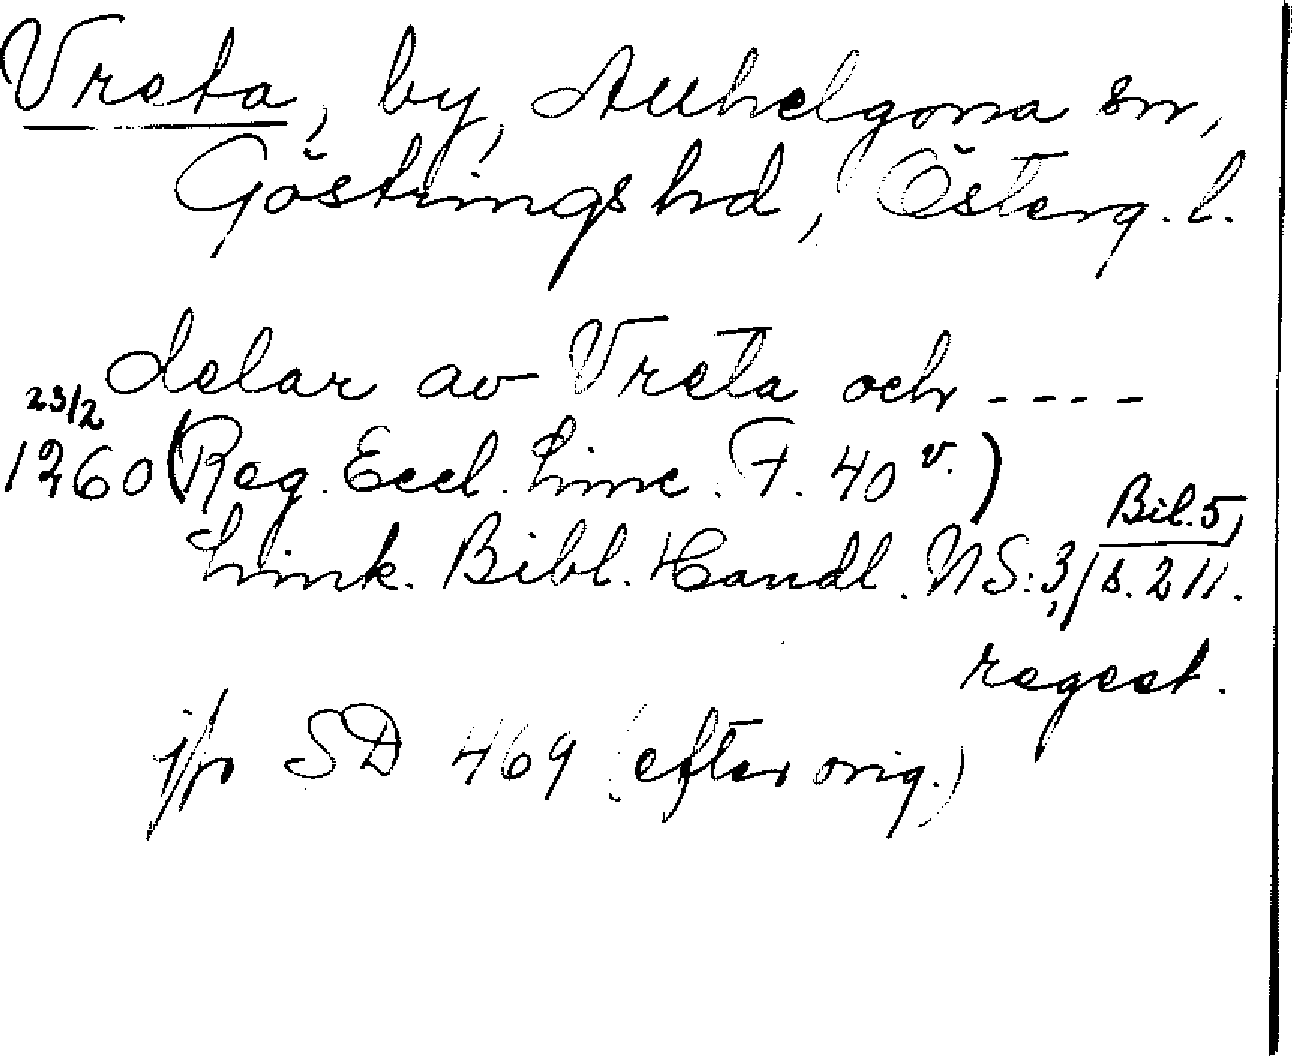 Vreta, by, Allhelgona sn,
Göstrings hd, Österg. l.
delar av Vreta och ----
23/2
1260 (Reg. Eccl. Linc. F. 40 v.)
Link. Bibl. Handl. NS:3, Bil. 5, s. 211.
regest.
jfr SD 469 (efter orig.)